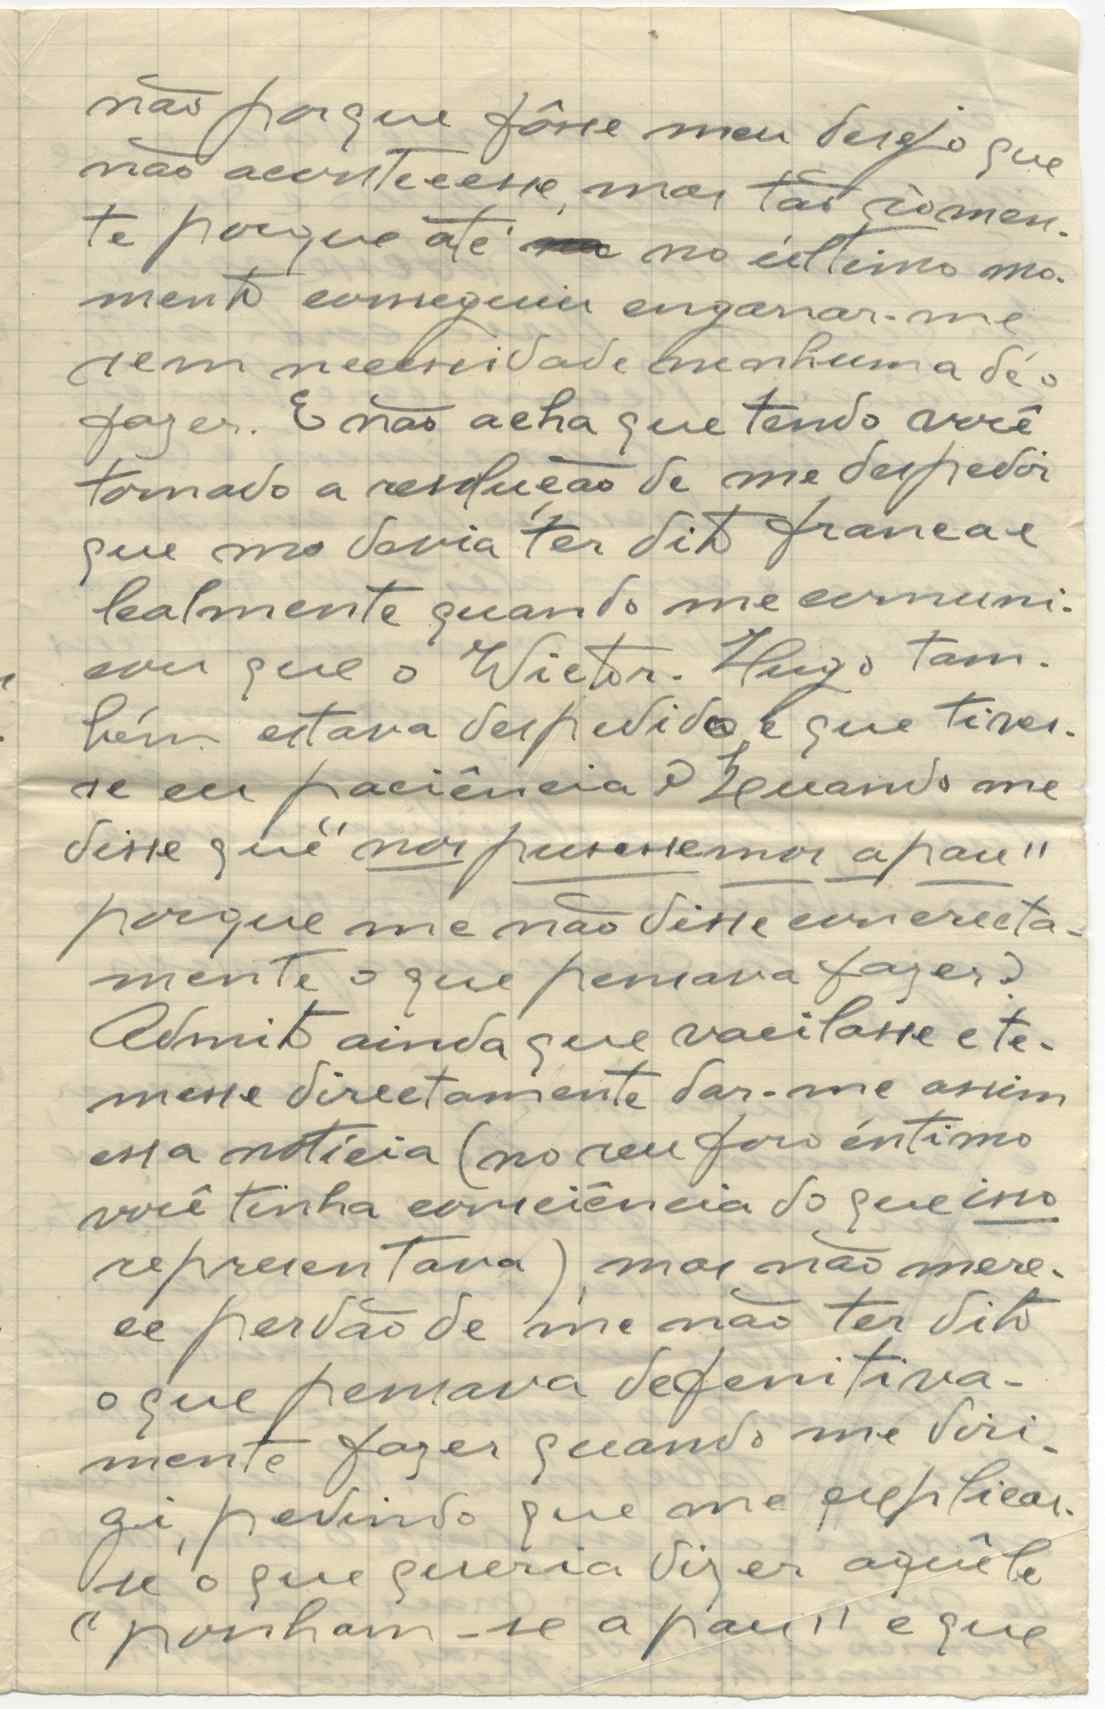 não porque fôsse meu desejo que
não acontecesse, mas tão sòmen-
te porque até no último mo-
mento conseguiu enganar-me
sem necessidade nenhuma de o
fazer. E não acha que tendo você
tomado a resolução de me despedir
que mo devia ter dito franca e
lealmente quando me comuni-
cou que o Victor-Hugo tam-
bém estava despedido, e que tives-
se eu paciência? Quando me
disse que "nos pusessemos a pau"
porque me não disse concreta-
mente o que pensava fazer?
Admito ainda que vacilasse e te-
messe directamente dar-me assim
essa notícia (no seu foro íntimo
você tinha consciência do que isso
representava), mas não mere-
ce perdão de me não ter dito
o que pensava defenitiva-
mente fazer quando me diri-
gi, pedindo que me explicas-
se o que queria dizer aquêle
"ponham-se a pau" e que